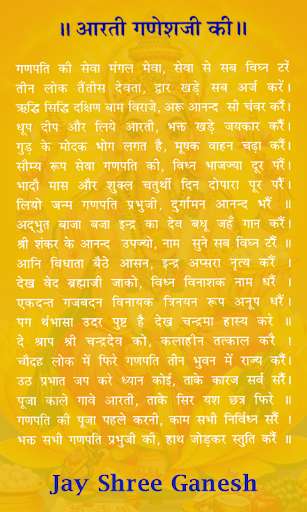 ॥ आरती गणेशजी की॥
गणपति की सेवा मंगल मेवा, सेवा से सब विघ्न टरें
तीन लोक तैंतीस देवता, द्वार खड़े सब अर्ज करें।
ऋद्धि सिद्धि दक्षिण बाम विराजे, अरू आनन्द सौ चंवर करैं।
धूप दीप और लिये आरती, भक्त खड़े जयकार करैं।
गुड़ के मोदक भोग लगत है, मूषक वाहन चढ़ा करैं।
सौम्य रूप सेवा गणपति को, विध्न भाजज्या दूर परैं।
भादौं मास और शुक्ल चतुर्थी दिन दोपारा पूर परैं।
लियो जन्म गणपति प्रभुजी, दुर्गामन आनन्द भरैं ॥
अद्‌भुत बाजा बजा इन्द्र का देव बधू जहँ गान करैं।
श्री शंकर के आनन्द उपज्यो, नाम सुने सब विघ्न टरैं ॥
आनि विधाता बैठे आसन, इन्द्र अप्सरा नृत्य करैं ।
देख वेद ब्रह्माजी जाको, विघ्न विनाशक नाम धरैं ।
एकदन्त गजवदन विनायक त्रिनयन रूप अनूप धरैं।
पग थंभासा उदर पुष्ट है देख चन्द्रमा हास्य करे ॥
दे श्राप श्री चन्द्रदेव को, कलाहीन तत्काल करैं ।
चौदह लोक में फिरे गणपति तीन भुवन में राज्य करैं।
उठ प्रभात जप करे ध्यान कोई, ताके कारज सर्व सरैं।
पूजा काले गावे आरती, ताके सिर यश छत्र फिरे ॥
गणपति की पूजा पहले करनी, काम सभी निर्विघ्न सरैं ।
भक्त सभी गणपति प्रभुजी को, हाथ जोड़कर स्तुति करैं ॥
Jay Shree Ganesh